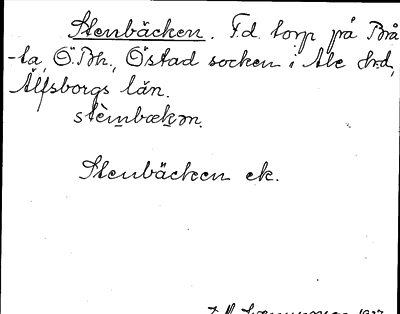 Stenbäcken. F.d. torp på Brå
-ta, Ö.Bh., Östad socken i Ale hrd,
Älfsborgs län.
stèmbækən.
Stenbäcken ek.